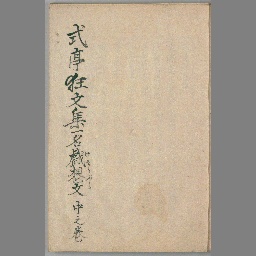 式亭狂文集一名戯想文中之巻